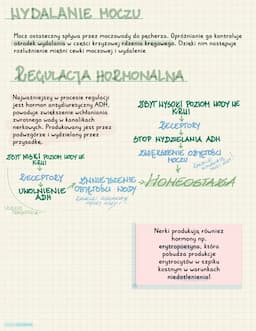 WYDALANIE MOCZU
Mocz ostateczny spływa przez moczowody do pęcherza. Opróżnianie go kontroluje
ośrodek wydalania w części krzyżowej rdzenia kręgowego. Dzięki nim następuje
rozluźnienie mięśni cewki moczowej i wydalenie
REGULACJA HORMONALNA
Najważniejszy w procesie regulacji
jest hormon antydiuretyczny ADH,
powoduje zwiększenie wchłaniania
zwrotnego wody w kanalikach
nerkowych. Produkowany jest przez
podwzgórze i wydzielany przez
przysadkę.
ZBYT WYSOKI POZIOM WODY WE
KRWI
RECEPTORY
STOP WYDZIELANIA ADH
ZWIĘKSZENIE OBJĘTOŚCI
MOCZU
ZBYT NISKI POZIOM WODY WE
KRWI
RECEPTORY
UWOLNIENIE
ADH
ZMNIEJSZENIE
OBJĘTOŚCI WODY
HOMEOSTAZA
Nerki produkują również
hormony np.
erytropoetyna, która
pobudza produkcje
erytrocytów w szpiku
kostnym w warunkach
niedotlenienia!